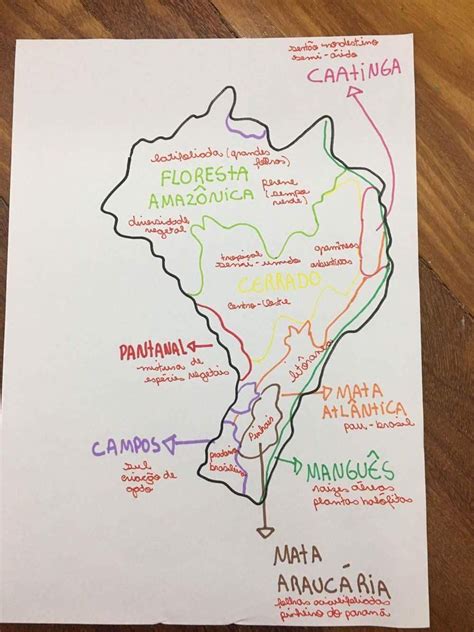 sertão nordestino
semi-árido
CAATINGA
latifoliada (grandes
folhas)
FLORESTA
AMAZÔNICA
perene
(sempre
verde)
diversidade
vegetal
tropical
semi-úmido
gramíneas
arbustivas
CERRADO
centro-Oeste
PANTANAL
mistura de
espécies vegetais
litorânea
MATA
ATLÂNTICA
pau-brasil
CAMPOS
sul
criação de
gado
pradaria
brasileira
Pinhais
MANGUÊS
raízes aéreas
plantas halófitas
MATA
ARAUCÁRIA
folhas aciculifoliadas
pinheiro do paraná